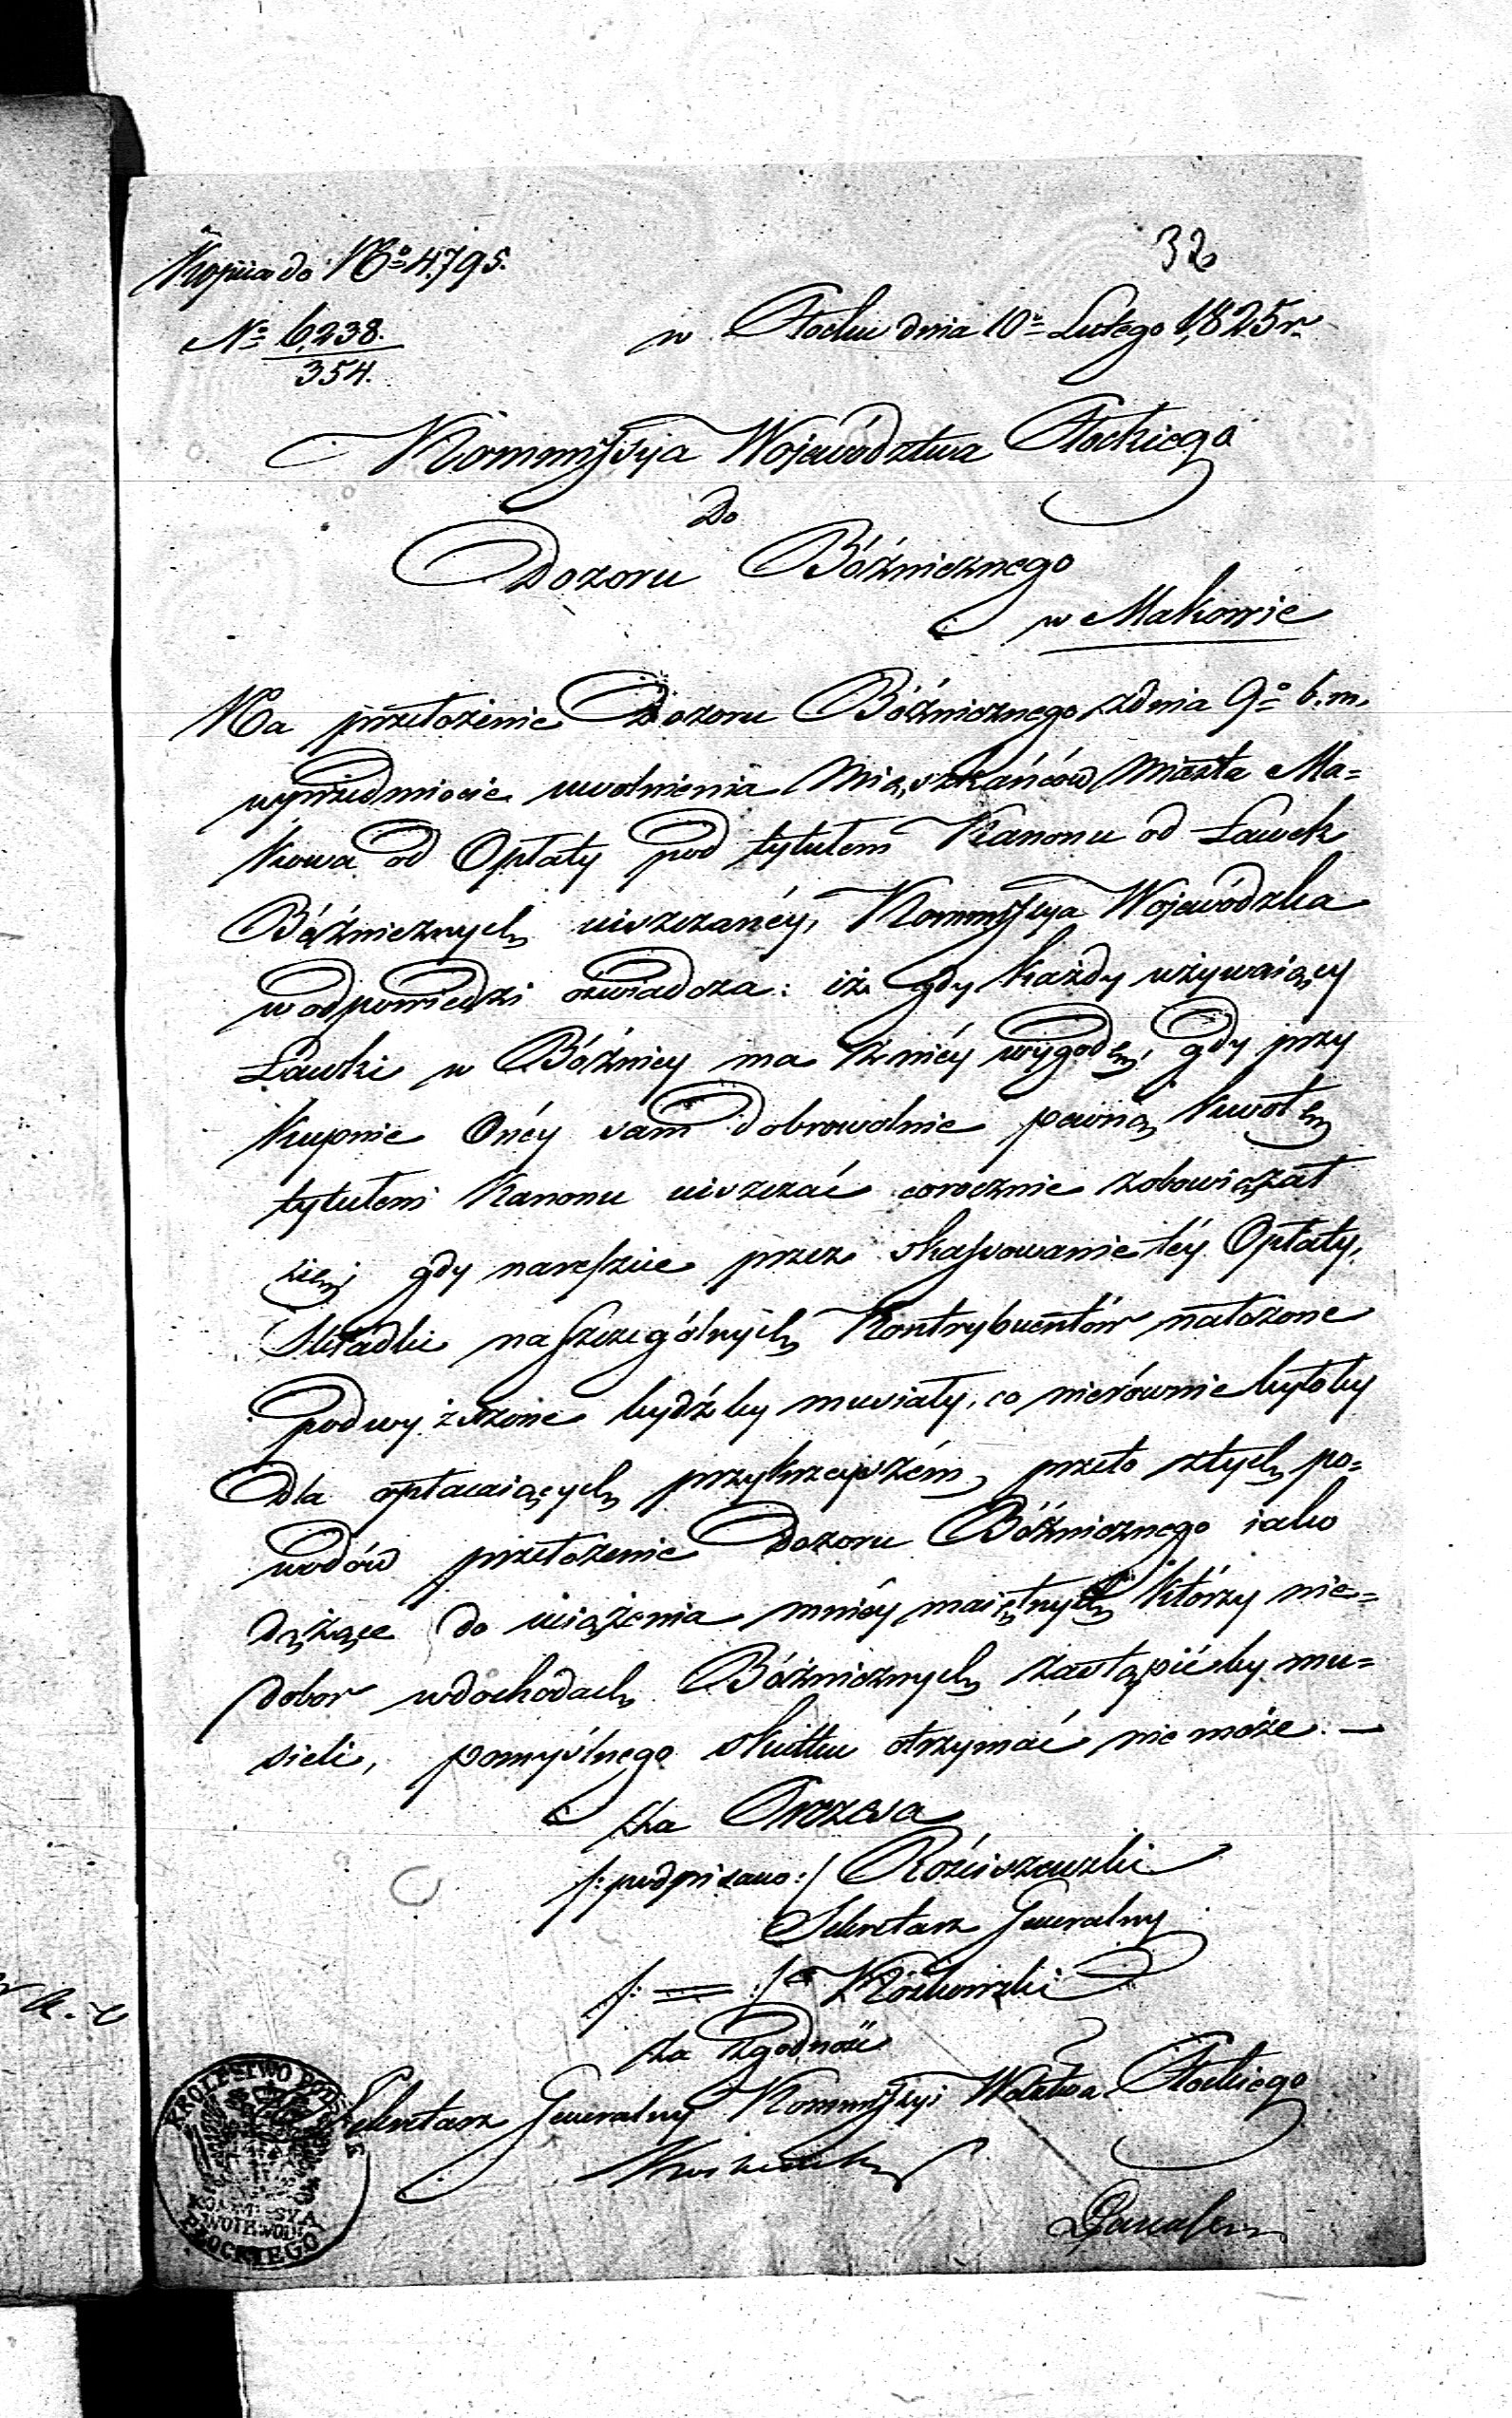 Kopia do No 4795.
32
No 6,238.
354.
w Płocku dnia 10o Lutego 1825 r.
Kommissyia Województwa Płockiego
Do
Dozoru Bóżnicznego
w Makowie
Na przełożenie Dozoru Bóźnicznego z dnia 9o b. m.
w przedmiocie uwolnienia Mieszkańców Miasta Ma=
kowa od Opłaty pod tytułem Kanonu od Ławek
Bóźnicznych uiszczanéy, Kommissyia Wojewódzka
w odpowiedzi oświadcza: iż gdy każdy używaiący
Ławki w Bóźnicy ma z niéy wygodę, gdy przy
kupnie Onéy sam dobrowolnie pewną kwotę
tytułem Kanonu uiszczać corocznie zobowiązał
się, gdy nareszcie przez skassowanie téy Opłaty,
Składki na szczególnych Kontrybuentów nałożone
podwyższone bydźby musiały, co nierównie byłoby
dla opłacaiących przykrzeyszém, przeto z tych po=
wodów przełożenie Dozoru Bóźnicznego iako
dążące do uciążenia mniéy maiętnych którzy nie=
dobor w dochodach Bóżnicznych zastąpićby mu=
sieli, pomyślnego skutku otrzymać nie może. —
za Prezesa
/: podpisano :/ Rościszewski
Sekretarz Generalny
/: = :/
za Zgodność
Sekretarz Generalny Kommissyi Wdztwa Płockiego
KROLESTWO POLSKIE
KOMMISSYA
WOIEWODZ
PŁOCKIEGO